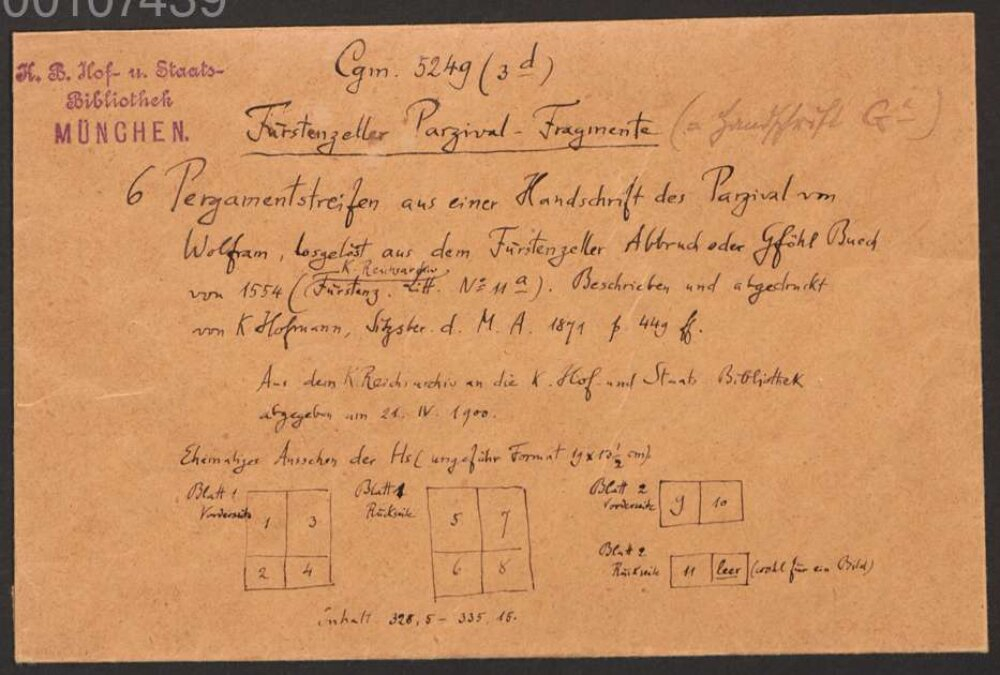 00107439
K. B. Hof- u. Staats-
Bibliothek
MÜNCHEN.
Cgm. 5249 (3 d)
Fürstenzeller Parzival-Fragmente (= Handschrift Ga)
6 Pergamentstreifen aus einer Handschrift des Parzival von
Wolfram, losgelöst aus dem Fürstenzeller Abbruch oder Gföhl Buech
K. Reichsarchiv
von 1554 (Fürstenz. Litt. No 11 a). Beschrieben und abgedruckt
von K Hofmann, Sitzber. d. M. A. 1871 p. 449 ff.
Aus dem K. Reichsarchiv an die K. Hof- und Staats Bibliothek
abgegeben am 21. IV. 1900.
Ehemaliges Aussehen der Hs (ungefähr Format 19 x 13 1/2 cm)
Blatt 1
Vorderseite
1 3
2 4
Blatt 1
Rückseite
5 7
6 8
Blatt 2
Vorderseite
9 10
Blatt 2
Rückseite
11 leer (wohl für ein Bild)
Inhalt 328, 5 - 335, 16.